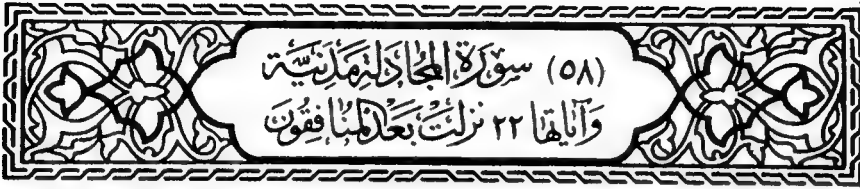 (٥٨) سُورَةُ المُجَادَلَةِ مَدَنِيَّة
وَآيَاتُهَا ٢٢ نَزَلَتْ بَعْدَ المُنَافِقُونَ